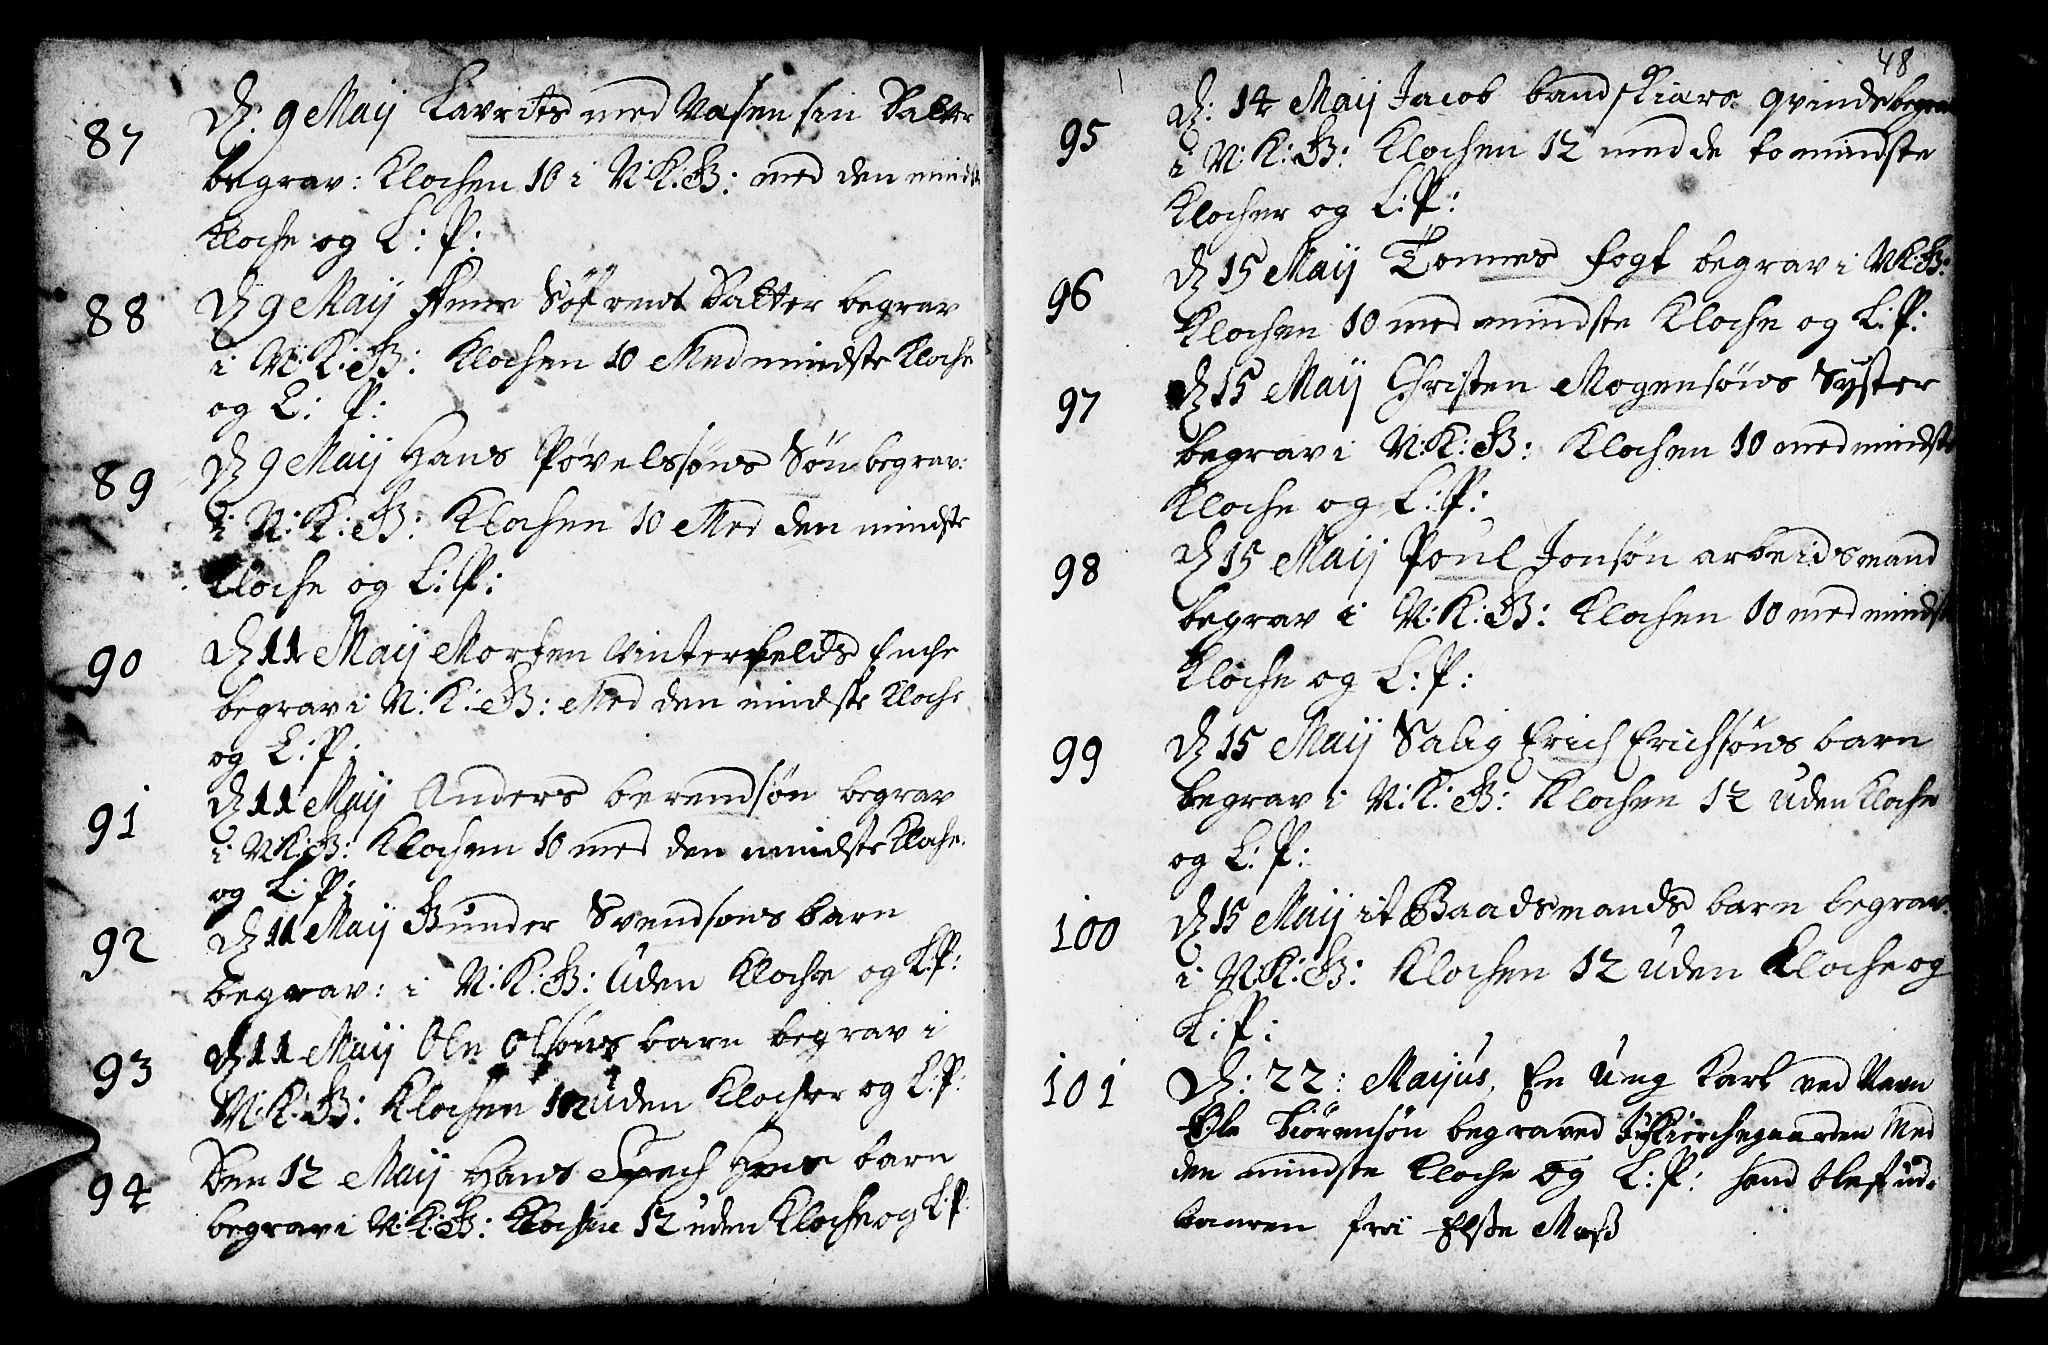 87
D: 9 Maij Lavrits med Vasen sin Datter
begrav: Klochen 10 i N:K:G: med den mindst
Kloche og L: P:
88
D 9 Maij Anne Söfrens Datter begrav
i N:K:G: Klochen 10 Med mindste Kloche
og L: P:
89
D 9 Maij Hans Pövelssöns Sön begrav:
i N:K:G: Klochen 10 Med den mindste
Kloche og L:P:
90
D 11 Maij Morten Vinterfelds Enche
begrav i N:K:G: Med den mindste Kloche
og L:P:
91
D 11 Maij Anders berendsön begrav
i N:K:G: Klochen 10 med den mindste Kloche.
og L:P:
92
D 11 Maij Gunder Svendsons barn
begrav: i N:K:G: Uden Kloche og L:P:
93
D 11 Maij Ole Olsöns barn begrav i
N:K:G: Klochen 12 Uden Klocher og L:P:
94
Den 12 Maij Hans Spech barn
begrav i N:K:G: Klochen 12 uden Kloche og L:P:
48
95
D: 14 Maij Jacob bandskiærs qvinde begrav
i N:K:G: Klochen 12 med de to mindste
Klocher og L:P:
96
D 15 Maij Tönnes fogt begrav i N:K:G:
Klochen 10 med mindste Kloche og L:P:
97
D 15 Maij Christen Mogensöns Syster
begrav i N:K:G: Klochen 10 med mindste
Kloche og L:P:
98
D 15 Maij Poul Jonsön arbeidsmand
begrav i N:K:G: Klochen 10 med mindst
Kloche og L:P:
99
D 15 Maij Salig Erich Erichsöns barn
begrav i N:K:G: Klochen 12 Uden Kloche
og L:P:
100
D 15 Maij it Baadsmands barn begrav:
i N:K:G: Klochen 12 uden Kloche og
L:P:
101
D: 22: Maijus, En Ung Karl ved Navn
Ole biörensön begraved Kirchegaarden Med
den mindste Kloche og L:P: hand blef ud-
baaren fra Elsse